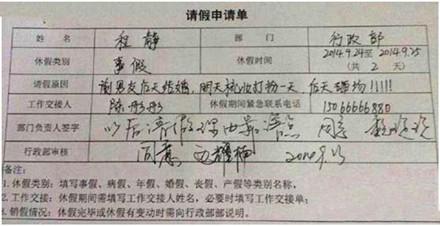 请假申请单
姓名 程静 部门 行政部
休假类别 事假 休假时间 2014.9.24至2014.9.25
(共 2 天)
请假原因 前男友后天结婚,明天梳妆打扮一天,后天砸场!!!!!
工作交接人 陈彤彤 休假期间紧急联系电话 15066666880
部门负责人签字 以后请假理由靠谱点 同意
行政部审核 同意
备注:
1.休假类别:填写事假、病假、年假、婚假、丧假、产假等类别名称,
2.工作交接:休假期间需填写工作交接人姓名,必要时填写工作交接单;
3.销假情况:休假完毕或休假有变动时需向行政部部说明。